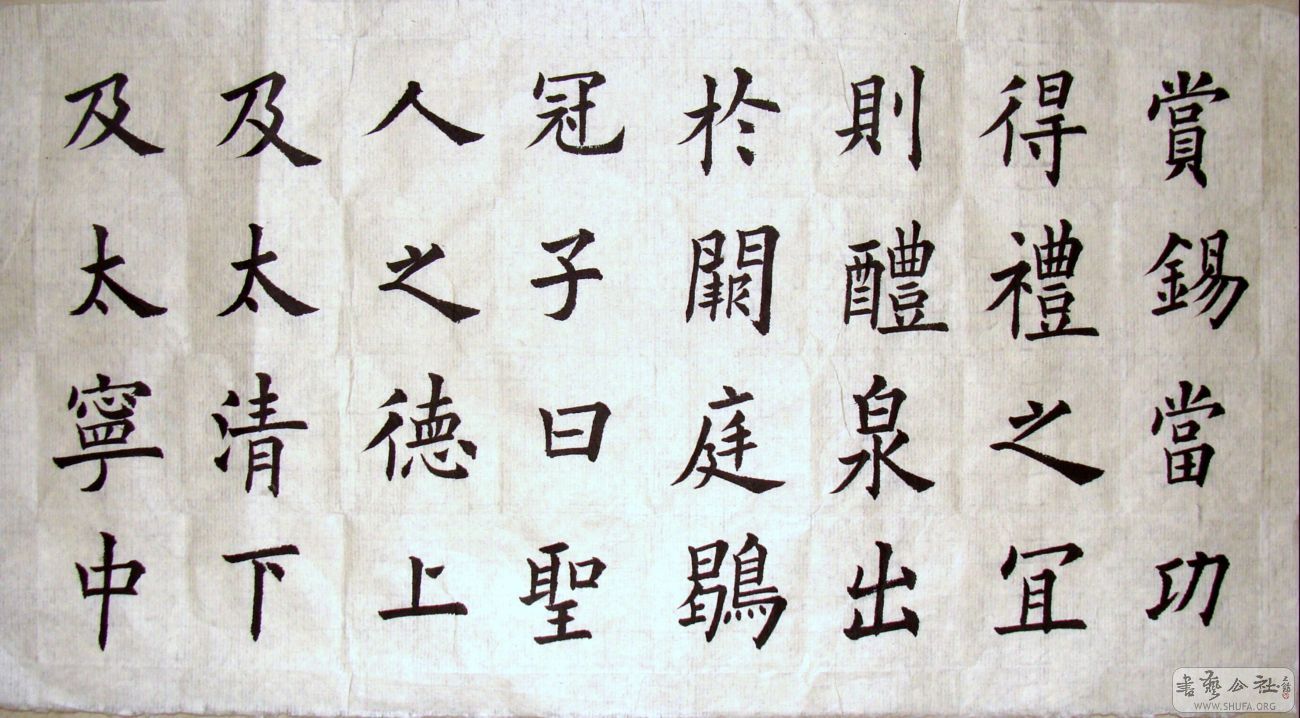 賞錫當功
得禮之冝
則醴泉出
於闕庭鶡
冠子曰聖
人之德上
及太清下
及太寧中
書藝公社
WWW.SHUFA.ORG